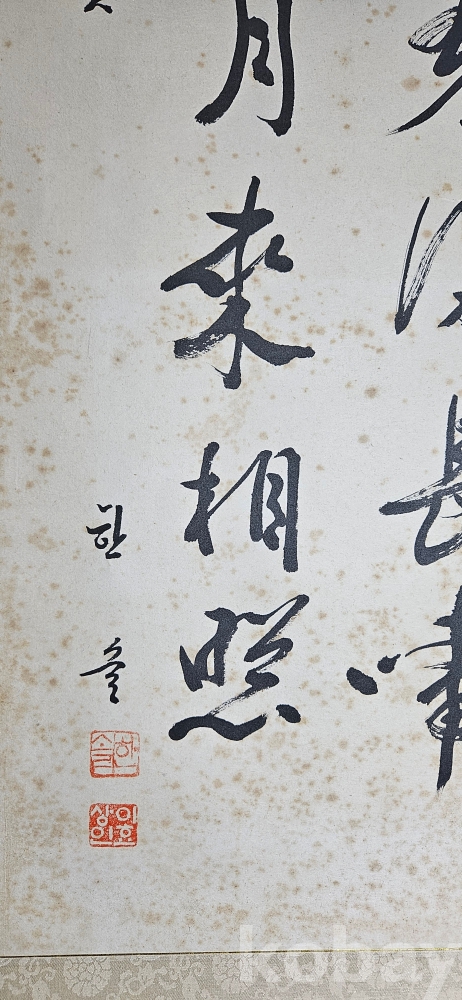 長嘯
月來相照
한솔
한솔
이효상인
kobay